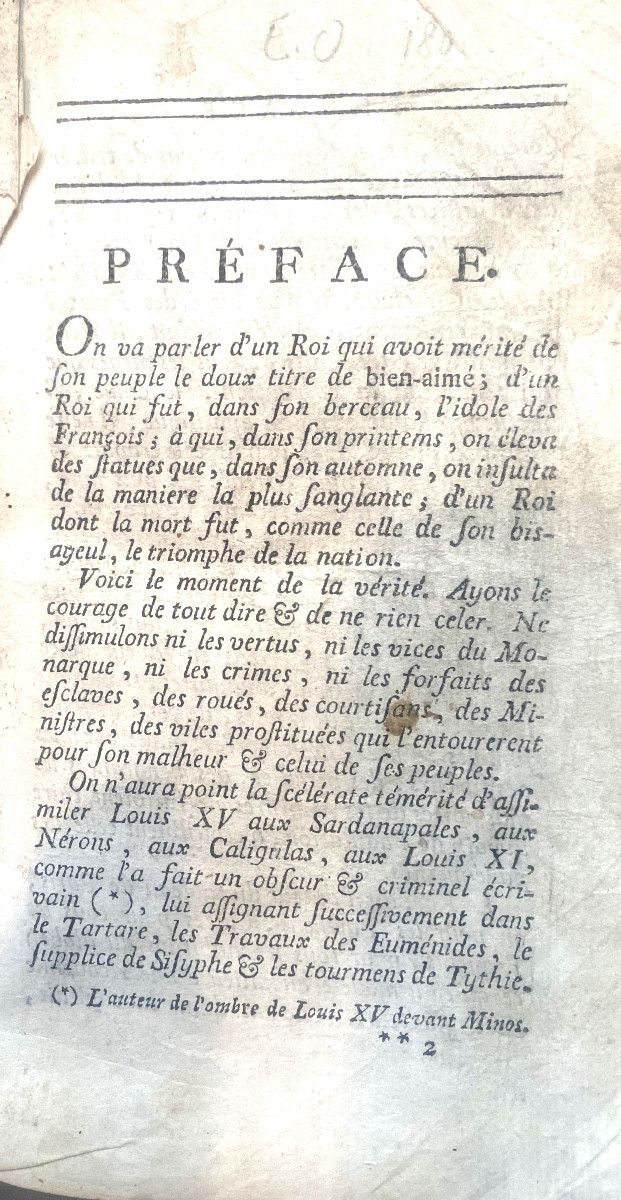 E.O 180
PRÉFACE.
On va parler d'un Roi qui avoit mérité de
ſon peuple le doux titre de bien-aimé; d'un
Roi qui fut, dans ſon berceau, l'idole des
François; à qui, dans ſon printems, on éleva
des ſtatues que, dans ſon automne, on inſulta
de la maniere la plus ſanglante; d'un Roi
dont la mort fut, comme celle de ſon bis-
ayeul, le triomphe de la nation.
Voici le moment de la vérité. Ayons le
courage de tout dire & de ne rien celer. Ne
diſſimulons ni les vertus, ni les vices du Mo-
narque, ni les crimes, ni les forfaits des
eſclaves, des roués, des courtiſans, des Mi-
niſtres, des viles proſtituées qui l'entourerent
pour ſon malheur & celui de ſes peuples.
On n'aura point la ſcélérate témérité d'aſſi-
miler Louis XV aux Sardanapales, aux
Nérons, aux Caligulas, aux Louis XI,
comme l'a fait un obſcur & criminel écri-
vain (*), lui aſſignant ſucceſſivement dans
le Tartare, les Travaux des Euménides, le
ſupplice de Siſyphe & les tourmens de Tythie.
(*) L'auteur de l'ombre de Louis XV devant Minos.
** 2